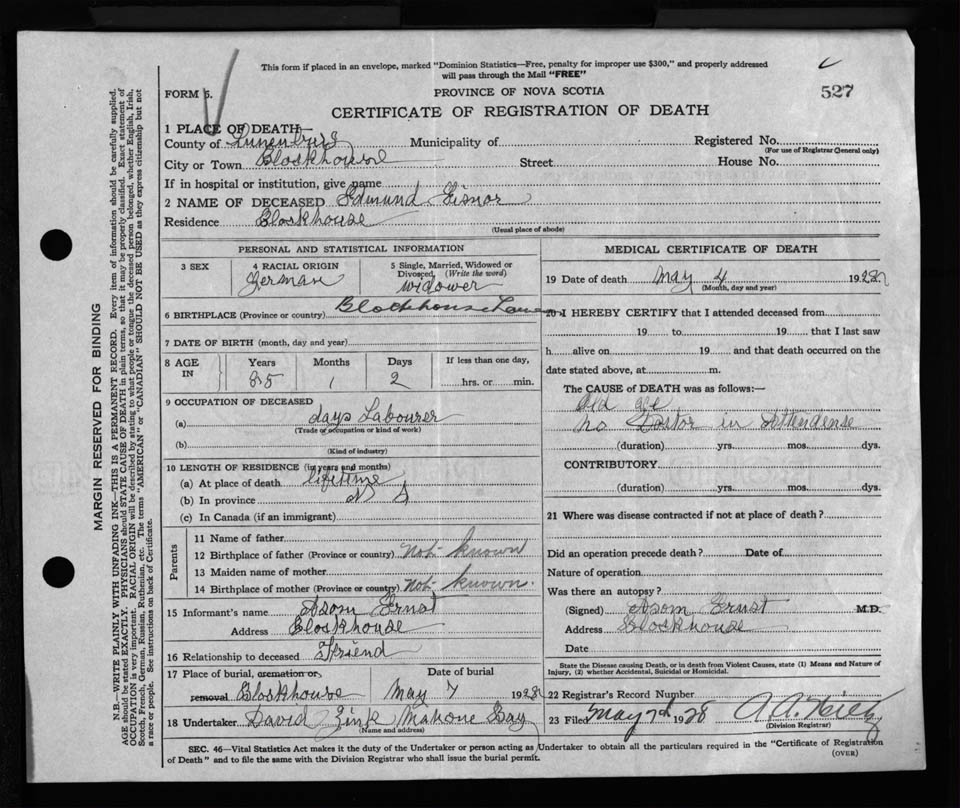 This form if placed in an envelope, marked "Dominion Statistics—Free, penalty for improper use $300," and properly addressed
will pass through the Mail "FREE"
FORM 5.
PROVINCE OF NOVA SCOTIA
527
CERTIFICATE OF REGISTRATION OF DEATH
1 PLACE OF DEATH—
County of Lunenburg Municipality of Registered No.
(For use of Registrar General only)
City or Town Blockhouse Street House No.
If in hospital or institution, give name
2 NAME OF DECEASED Edmund Eisnor
Residence Blockhouse
(Usual place of abode)
PERSONAL AND STATISTICAL INFORMATION
3 SEX
4 RACIAL ORIGIN
German
5 Single, Married, Widowed or
Divorced, (Write the word)
widower
6 BIRTHPLACE (Province or country) Blockhouse
7 DATE OF BIRTH (month, day and year)
8 AGE IN
Years Months Days If less than one day,
85 1 2 hrs. or min.
9 OCCUPATION OF DECEASED
(a) days Labourer
(Trade or occupation or kind of work)
(b)
(Kind of industry)
10 LENGTH OF RESIDENCE (in years and months)
(a) At place of death lifetime
(b) In province N S
(c) In Canada (if an immigrant)
Parents
11 Name of father
12 Birthplace of father (Province or country) Not known
13 Maiden name of mother
14 Birthplace of mother (Province or country) Not known.
15 Informant's name Asom Ernst
Address Blockhouse
16 Relationship to deceased Friend
17 Place of burial, cremation or Date of burial
removal Blockhouse May 7 1928
18 Undertaker David Zink Mahone Bay
(Name and address)
MEDICAL CERTIFICATE OF DEATH
19 Date of death May 4 1928
(Month, day and year)
20 I HEREBY CERTIFY that I attended deceased from
19 to 19 that I last saw
h alive on 19 and that death occurred on the
date stated above, at m.
The CAUSE of DEATH was as follows:—
Old age
no Doctor in Attendense
(duration) yrs. mos. dys.
CONTRIBUTORY
(duration) yrs. mos. dys.
21 Where was disease contracted if not at place of death?
Did an operation precede death? Date of
Nature of operation
Was there an autopsy?
(Signed) Asom Ernst M.D.
Address Blockhouse
Date
State the Disease causing Death, or in death from Violent Causes, state (1) Means and Nature of
Injury, (2) whether Accidental, Suicidal or Homicidal.
22 Registrar's Record Number
23 Filed May 7th 1928
(Division Registrar)
SEC. 46—Vital Statistics Act makes it the duty of the Undertaker or person acting as Undertaker to obtain all the particulars required in the "Certificate of Registration
of Death" and to file the same with the Division Registrar who shall issue the burial permit.
(OVER)
MARGIN RESERVED FOR BINDING
N.B.—WRITE PLAINLY WITH UNFADING INK—THIS IS A PERMANENT RECORD. Every item of information should be carefully supplied.
AGE should be stated EXACTLY. PHYSICIANS should STATE CAUSE OF DEATH in plain terms, so that it may be properly classified. Exact statement of
OCCUPATION is very important. RACIAL ORIGIN will be described by stating to what people or tongue the deceased person belonged, whether English, Irish,
Scotch, French, German, Russian, Ruthenian, etc. The terms "AMERICAN" or "CANADIAN" SHOULD NOT BE USED as they express citizenship but not
a race or people. See instructions on back of Certificate.